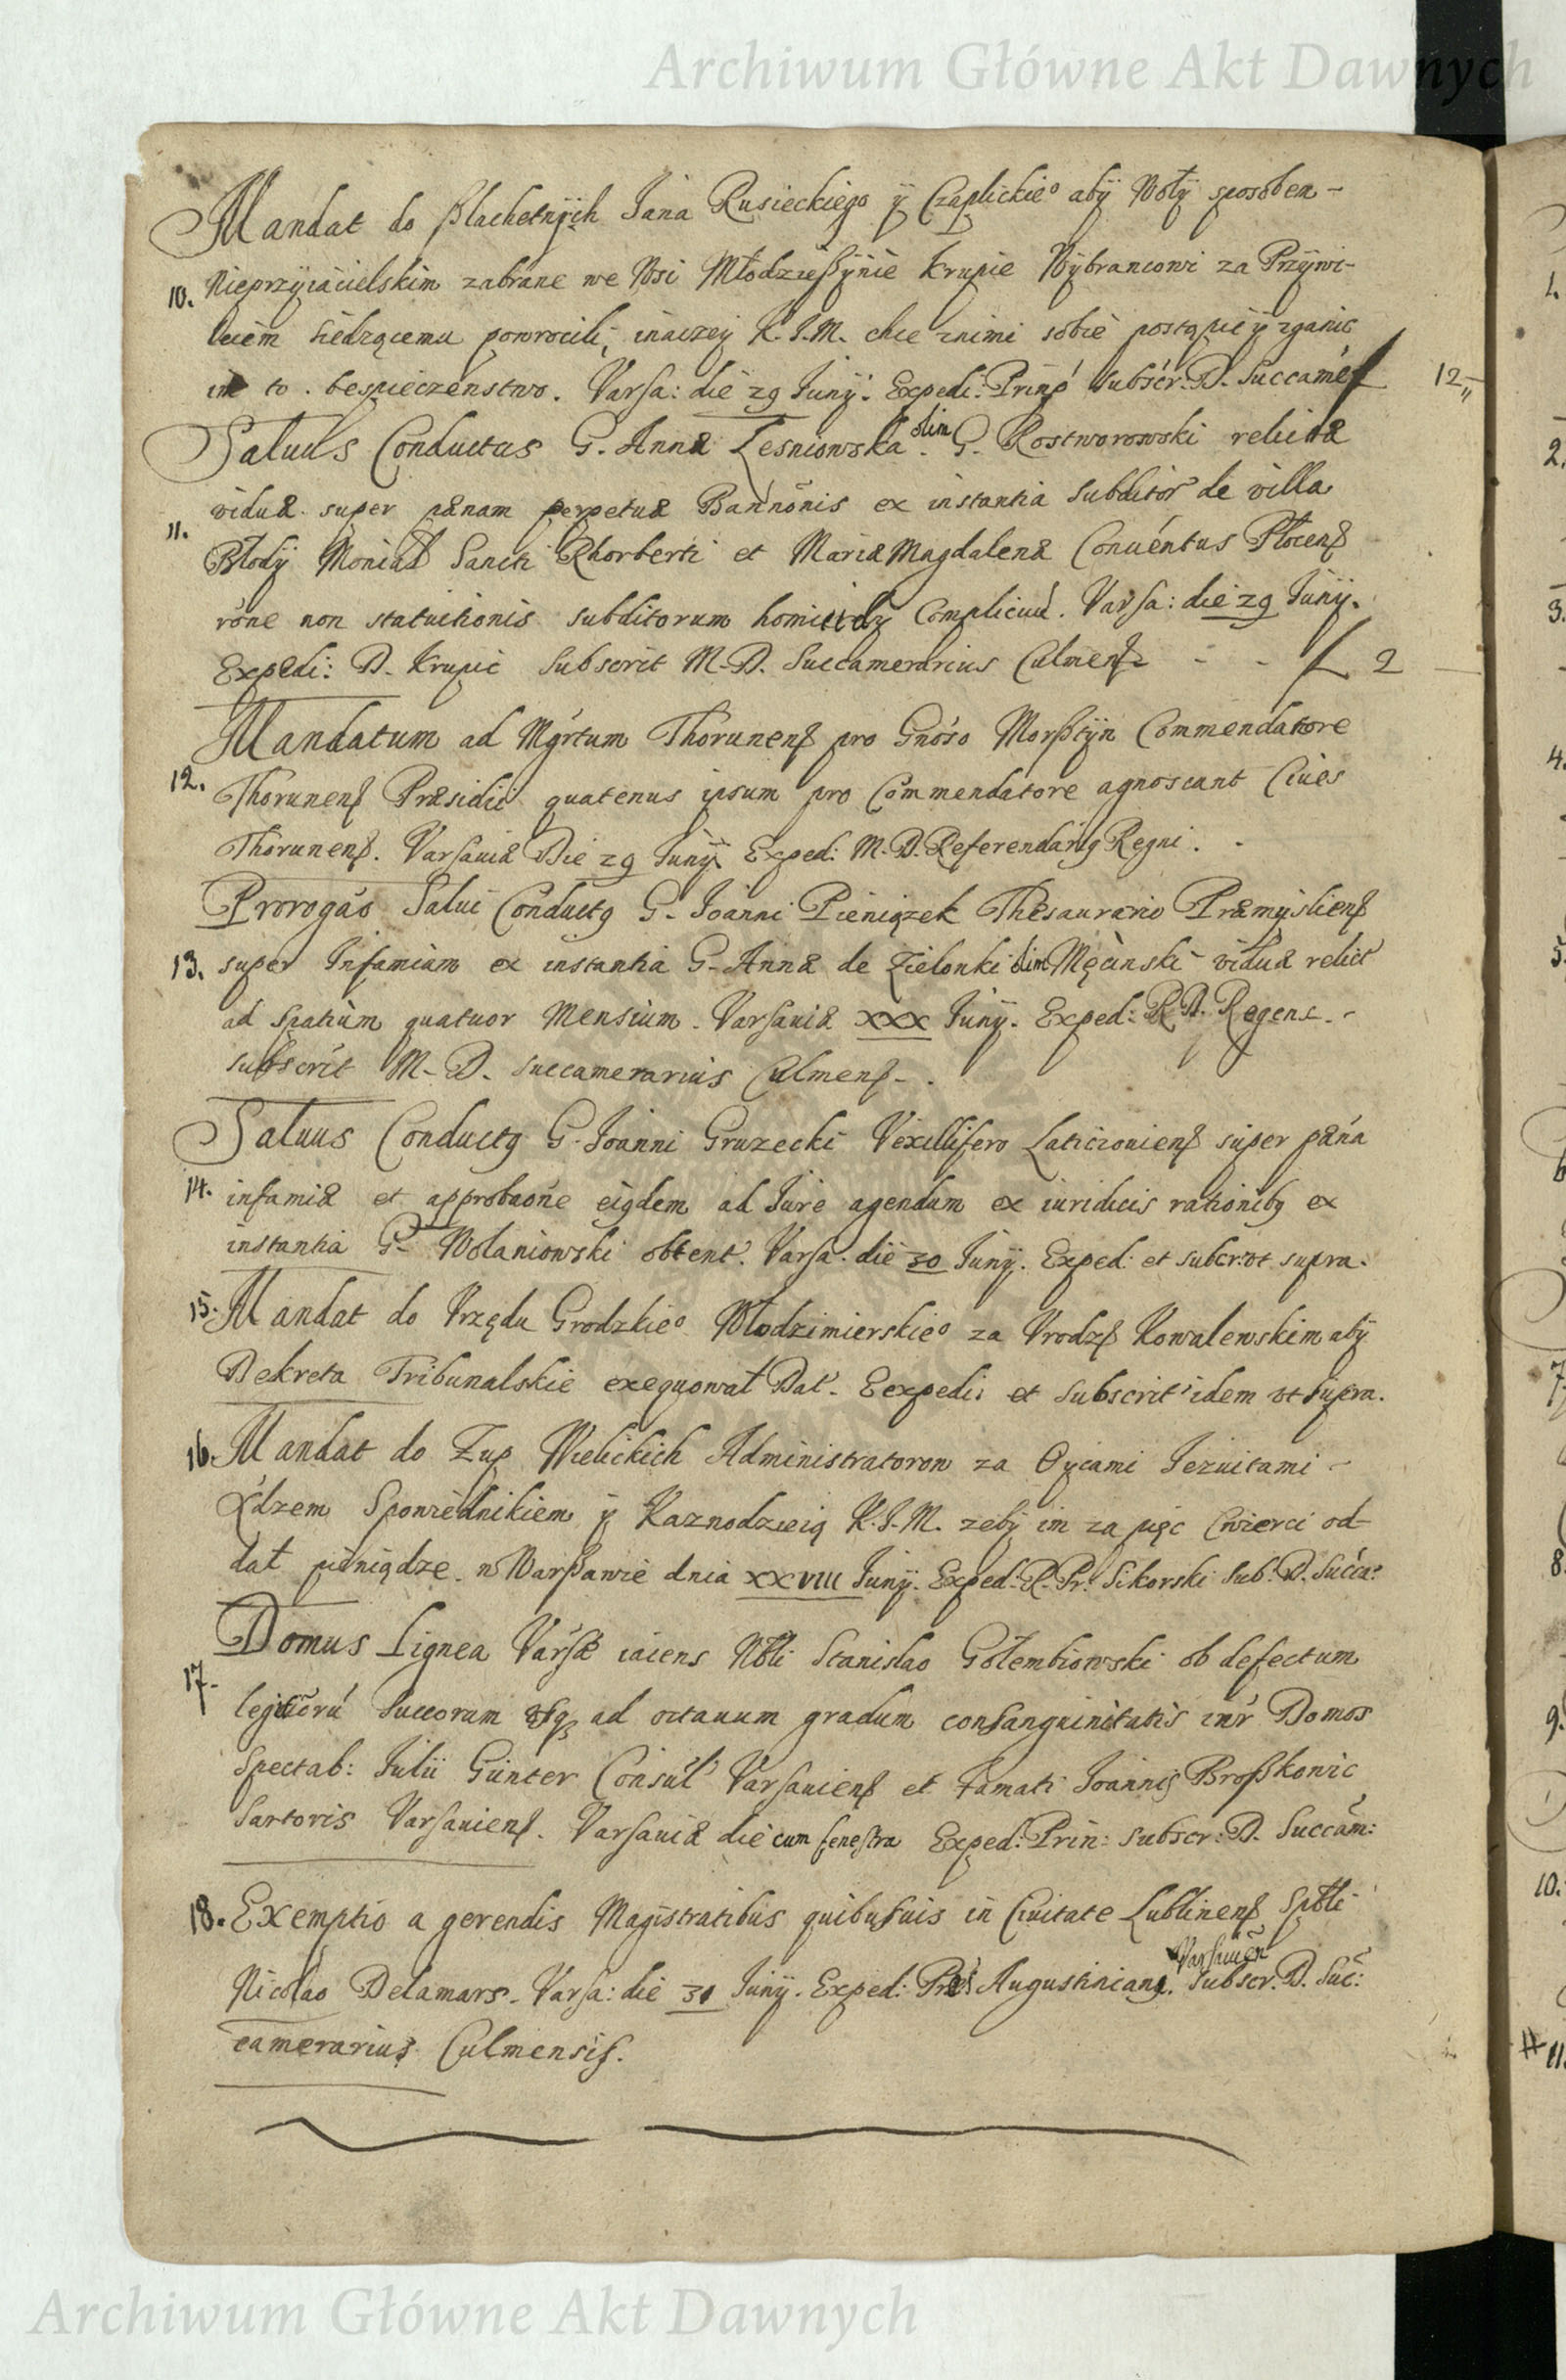 Archiwum Główne Akt Dawnych
Mandat do ßlachetnÿch Jana Rusieckiego ÿ Czaplickie° abÿ Wołÿ sposobem
10. Nieprzyiacielskim zabrane we Wsi Młodzießÿnie Krupie Wÿbrancowi za Przÿwi-
leiem siedzącemu powrocili, inaczeÿ K.J.M. chce znimi sobie postąpić ÿ zganic
im to bespieczenstwo. Varsa: die 29 Junÿ. Expedi: Prinp subscr. D. Succamer 12
Saluus Conductus G. Annæ Lesniowska olim G. Rostworowski relictæ
11. viduæ super pænam perpetuæ Bannonis ex instantia Subditor de villa
Błodÿ Monial Sancti Rhorberti et Mariæ Magdalenæ Conuentus Płocenß
rone non statuitionis subditorum homicidÿ Complicum. Varsa: die 29 Junÿ.
Expedi: D. Krupic Subscrit M.D. Succamerarius Culmenß - - f 2
Mandatum ad Mgrtum Thorunenß pro Gnoso Morßtÿn Commendatore
12. Thorunenß Præsidii quatenus ipsum pro Commendatore agnoscant Ciues
Thorunenß. Varsauiæ Die 29 Junÿ Exped: M.D. Referendariꝯ Regni.
Prorogao Salui Conductꝯ G. Joanni Pieniązek Thesaurario Præmÿslienß
13. super Infamiam ex instantia G. Annæ de Zielonki olim Męcinski viduæ relict
ad Spatium quatuor Mensium. Varsauiæ XXX Junÿ. Exped: R.D. Regens.
subscrit M.D. succamerarius Culmenß.
Saluus Conductꝯ G. Joanni Gruzecki Vexillifero Laticzouienß super pæna
14. infamiæ et approbaone eiꝯdem ad Jure agendum ex iuridicis rationibꝯ ex
instantia G. Wolaniowski obtent. Varsa. die 30 Junÿ. Exped: et subcr: vt supra.
15. Mandat do Vrzędu Grodzkie° Włodzimierskie° za Vrodzß Kowalewskim abÿ
Dekreta Tribunalskie exequował Dat. Eexpedi: et Subscrit idem vt supra.
16. Mandat do Zup Wielickich Administratorow za Oycami Jezuitami
Xdzem Spowiednikiem ÿ Kaznodzieią K.J.M. zebÿ im za pięc Cwierci od-
dał pieniądze. w Warßawie dnia XXVIII Junÿ. Exped. R. Pr. Sikorski Sub. D. Succa:
Domus Lignea Varsæ iaiens Nbli Stanislao Gołembiowski ob defectum
17. legitioru Succorum vsqꝫ ad octauum gradum consanguinitatis intr Domos
Spectab: Julii Giinter Consul Varsauienß et Famati Joannis Broßkowic
Sartoris Varsauienß. Varsauiæ die cum fenestra Exped: Prin: subscr: D. Succam:
18. Exemptio a gerendis Magistratibus quibusuis in Ciuitate Lublinenß Spbli
Nicolao Delamars. Varsa: die 31 Junÿ. Exped: Præs Augustinianꝯ Varsauien Subscr. D. Suc:
camerarius Culmensis.
Archiwum Główne Akt Dawnych